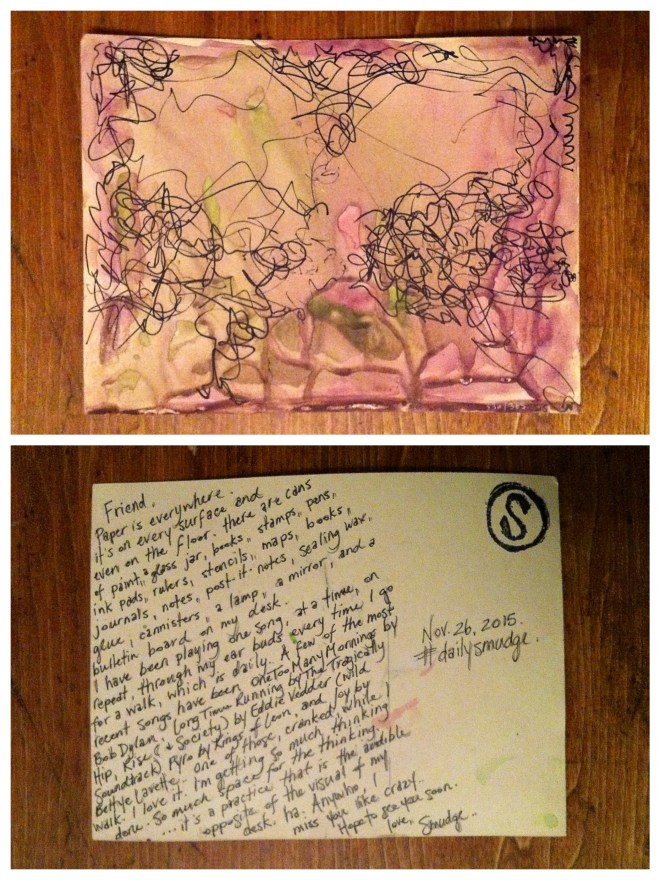 Friend.
Paper is everywhere.
it's on every surface and
even on the floor. there are cans
of paint, a glass jar, books, stamps, pens,
ink pads, rulers, stencils, maps, books,
journals, notes, post-it-notes, sealing wax,
glue, cannisters, a lamp, a mirror, and a
bulletin board on my desk.
I have been playing one song, at a time, on
repeat, through my ear buds every time I go
for a walk, which is daily. A few of the most
recent songs have been One Too Many Mornings by
Bob Dylan, Long Time Running by The Tragically
Hip, Rise (& Society) by Eddie Vedder (Wild
Soundtrack) Pyro by Kings of Leon, and Joy by
Bettye Lavette. One of those, cranked, while I
walk. I love it. I'm getting so much thinking
done. So much space for the thinking.
...it's a practice that is the audible
opposite of the visual of my
desk, ha. Anywho, I
miss you like crazy.
Hope to see you soon.
love, Smudge.
S
Nov. 26, 2015.
#dailysmudge.